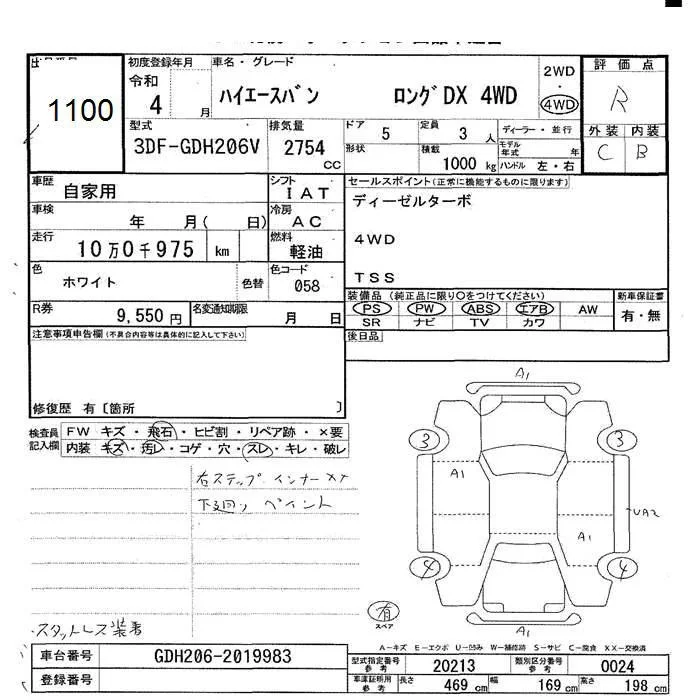 初度登録年月 車名・グレード 2WD 評価点
令和 4 月 ハイエースバン ロングDX 4WD ・ 4WD R
1100
型式 排気量 ドア 5 定員 3 人 ディーラー・並行 外装 内装
3DF-GDH206V 2754 CC 形状 積載 1000 kg モデル年式 年 ハンドル 左・右 C B
車歴 自家用 シフト IAT セールスポイント(正常に機能するものに限ります)
車検 年 月( 日) 冷房 AC ディーゼルターボ
走行 10万0千975 km 燃料 軽油 4WD
色 ホワイト 色替 色コード 058 TSS
R券 9,550 円 名変通知期限 月 日 装備品(純正品に限り○をつけてください) 新車保証書
PS PW ABS エアB AW 有・無
SR ナビ TV カワ
注意事項申告欄(不具合内容等は具体的に記入して下さい) 後日品
修復歴 有〔箇所 〕
検査員記入欄 FW キズ・飛石・ヒビ割・リペア跡・×要
内装 キズ・汚レ・コゲ・穴・スレ・キレ・破レ
右ステップ インナーXX
下廻り ペイント
A1
3 3
A1
UA2
A1
4 4
有
スペア
A1
スタットレス装着
A-キズ E-エクボ U-凹み W-補修跡 S-サビ C-腐食 XX-交換済
車台番号 GDH206-2019983 型式指定番号 参考 20213 類別区分番号 参考 0024
登録番号 車庫証明用 参考 長さ 469 cm 幅 169 cm 高さ 198 cm